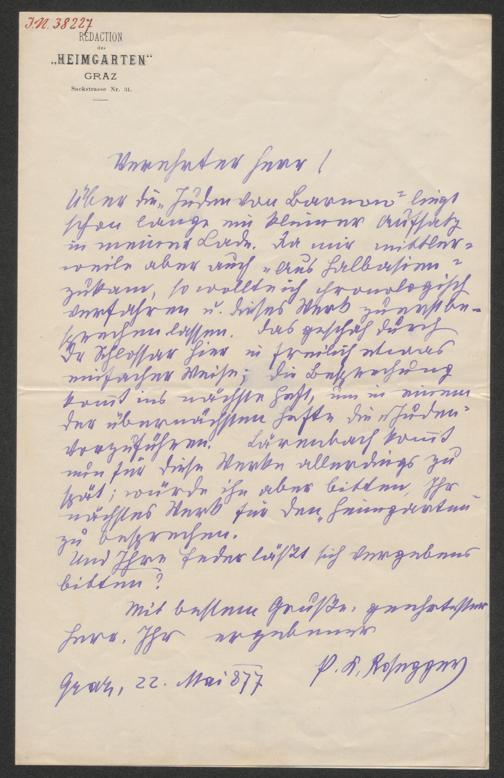 I.N. 38227
REDACTION
des
„HEIMGARTEN“
GRAZ
Sackstrasse Nr. 31.
Verehrter Herr!
Über die „Juden von Barnow“ liegt
schon lange ein kleiner Aufsatz
in meiner Lade. Da mir mittler=
weile aber auch „Aus Halbasien“
zukam, so wollte ich chronologisch
verfahren u. dieses Werk zuerst be-
sprechen lassen. Das geschah durch
Dr Schlossar hier in freilich etwas
einfacher Weise; die Besprechung
kom̅t ins nächste Heft, um in einem
der übernächsten Hefte die „Juden“
vorzuführen. kom̅t
nun für diese Werke allerdings zu
spät; würde ihn aber bitten, Ihr
nächstes Werk für den „Heimgarten“
zu besprechen.
Und Ihre Feder läßt sich vergebens
bitten?
Mit bestem Gruße, geehrtester
Herr, Ihr ergebener
P. K. Rosegger
Graz, 22. Mai 877